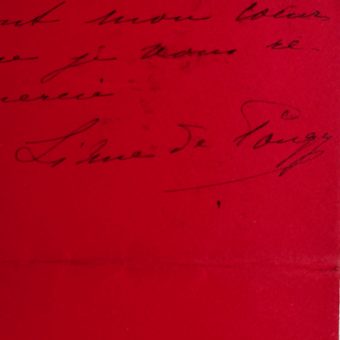 nt mon coeur
e je vous re-
mercie
Liane de Pougy